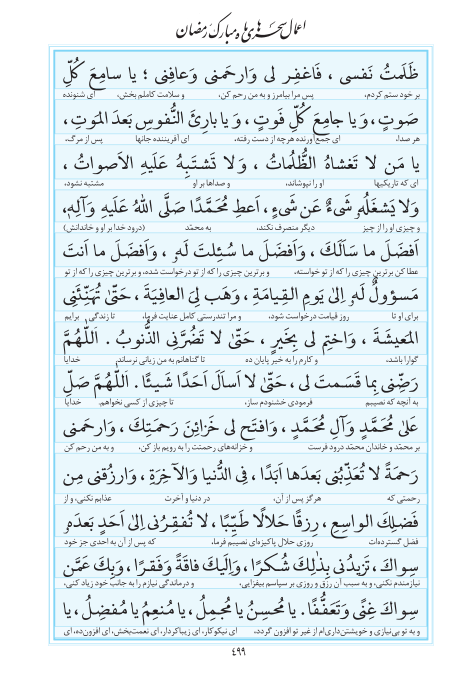 اعمال سحری‌های ماه مبارک رمضان
ظَلَمتُ نَفسی ، فَاغفِر لی وَارحَمنی وَعافِنی ؛ یا سامِعَ کُلِّ
بر خود ستم کردم، پس مرا بیامرز و به من رحم کن، و سلامت کاملم بخش، ای شنونده
صَوتٍ ، وَیا جامِعَ کُلِّ فَوتٍ ، وَیا بارِئَ النُّفوسِ بَعدَ المَوتِ ،
هر صدا، ای جمع آورنده هرچه از دست رفته، ای آفریننده جانها پس از مرگ،
یا مَن لا تَغشاهُ الظُّلُماتُ ، وَلا تَشتَبِهُ عَلَیهِ الاَصواتُ ،
ای که تاریکیها او را نپوشاند، و صداها بر او مشتبه نشود،
وَلا یَشغَلُهُ شَیءٌ عَن شَیءٍ ، اَعطِ مُحَمَّدًا صَلَّی اللهُ عَلَیهِ وَآلِهِ،
و چیزی او را از چیز دیگر منصرف نکند، به محمّد (درود خدا بر او و خاندانش)
اَفضَلَ ما سَاَلَکَ ، وَاَفضَلَ ما سُئِلتَ لَهُ ، وَاَفضَلَ ما اَنتَ
عطا کن برترین چیزی را که از تو خواسته، و برترین چیزی را که از تو درخواست شده، و برترین چیزی را که از تو
مَسؤولٌ لَهُ اِلیٰ یَومِ القِیامَةِ ، وَهَب لِیَ العافِیَةَ ، حَتّیٰ تُهَنِّئَنِی
برای او تا روز قیامت درخواست شود، و مرا تندرستی کامل عنایت فرما، تا زندگی برایم
المَعیشَةَ ، وَاختِم لی بِخَیرٍ ، حَتّیٰ لا تَضُرَّنِی الذُّنوبُ . اَللّٰهُمَّ
گوارا باشد، و کارم را به خیر پایان ده تا گناهانم به من زیانی نرساند، خدایا
رَضِّنی بِما قَسَمتَ لی ، حَتّیٰ لا اَساَلَ اَحَدًا شَیئًا . اَللّٰهُمَّ صَلِّ
به آنچه که نصیبم فرمودی خشنودم ساز، تا چیزی از کسی نخواهم. خدایا
عَلیٰ مُحَمَّدٍ وَآلِ مُحَمَّدٍ ، وَافتَح لی خَزائِنَ رَحمَتِکَ ، وَارحَمنی
بر محمّد و خاندان محمّد درود فرست و خزانه‌های رحمتت را به رویم باز کن، و به من رحم کن
رَحمَةً لا تُعَذِّبُنی بَعدَها اَبَدًا ، فِی الدُّنیا وَالآخِرَةِ ، وَارزُقنی مِن
رحمتی که هرگز پس از آن، در دنیا و آخرت عذابم نکنی، و از
فَضلِکَ الواسِعِ ، رِزقًا حَلالًا طَیِّبًا ، لا تُفقِرُنی اِلیٰ اَحَدٍ بَعدَهُ
فضل گسترده‌ات روزی حلال پاکیزه‌ای نصیبم فرما، که پس از آن به احدی جز خود
سِواکَ ، تَزیدُنی بِذٰلِکَ شُکرًا ، وَاِلَیکَ فاقَةً وَفَقرًا ، وَبِکَ عَمَّن
نیازمندم نکنی، و به سبب آن رزق و روزی بر سپاسم بیفزایی، و درماندگی نیازم را به جانب خود زیاد کنی،
سِواکَ غِنًی وَتَعَفُّفًا . یا مُحسِنُ یا مُجمِلُ ، یا مُنعِمُ یا مُفضِلُ ، یا
و به تو بی‌نیازی و خویشتن‌داری‌ام از غیر تو افزون گردد، ای نیکوکار، ای زیباکردار، ای نعمت‌بخش، ای افزون‌ده، ای
٤٩٩